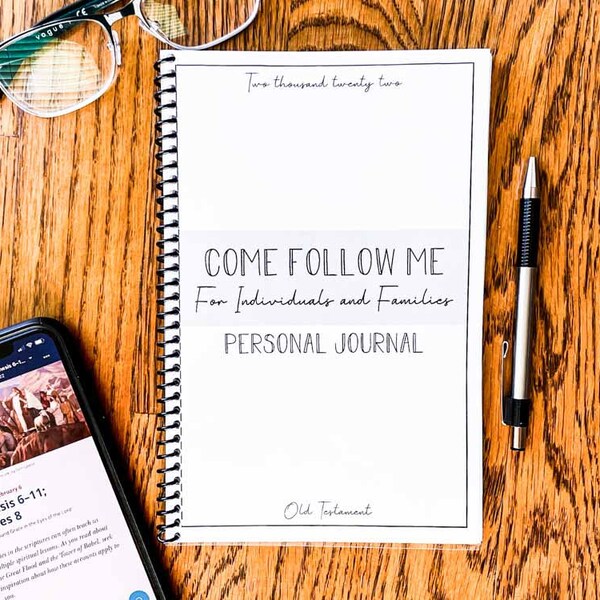 vogue CE
Two thousand twenty two
COME FOLLOW ME
For Individuals and Families
PERSONAL JOURNAL
Old Testament
esis 6–1...
bruary 6
sis 6–11;
es 8
Grace in the Eyes of the Lord
es in the scriptures can often teach us
ltiple spiritual lessons. As you read about
e Great Flood and the Tower of Babel, seek
inspiration about how these accounts apply to
you.